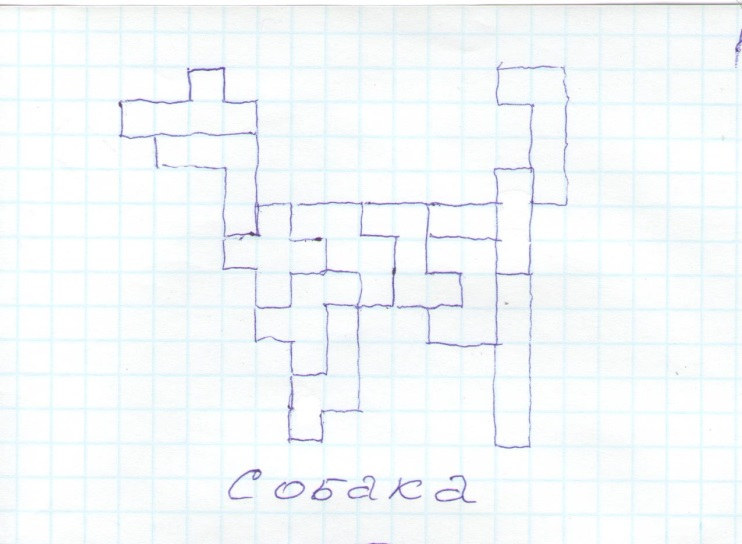 Собака